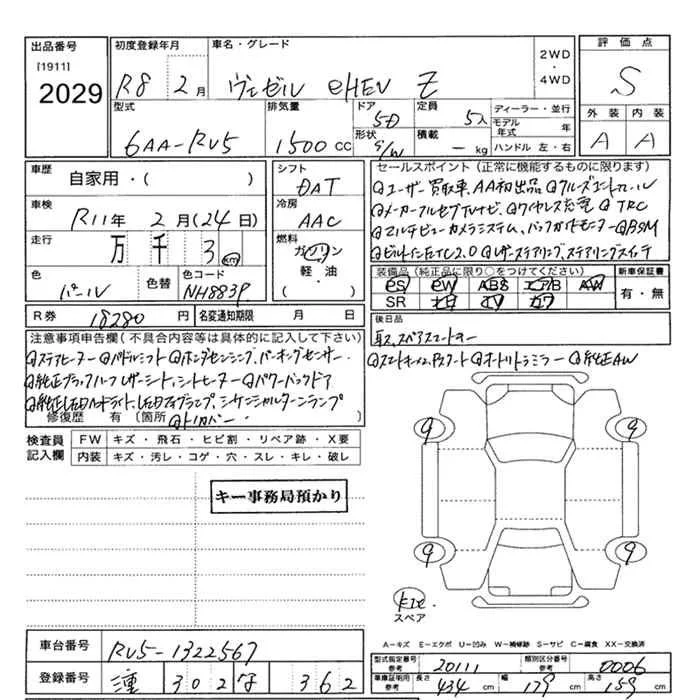 出品番号
[1911]
2029
初度登録年月
R8 2月
車名・グレード
ヴェゼル eHEV Z
2WD
・
4WD
評価点
S
外装 内装
A A
型式
6AA-RV5
排気量
1500 CC
ドア
5D
形状
S/W
定員
5人
積載
— kg
ディーラー・並行
モデル年式 年
ハンドル 左・右
車歴
自家用・( )
車検
R11年 2月(24日)
走行
万 千 3 km
色
パール
色替
色コード
NH883P
シフト
DAT
冷房
AAC
燃料
ガソリン
軽油
・
( )
R券
18280 円
名変通知期限 月 日
セールスポイント(正常に機能するものに限ります)
◎ユーザー買取車、AA初出品 ◎クルーズコントロール
◎メーカーフルセグTVナビ、◎ワイヤレス充電 ◎TRC
◎マルチビューカメラシステム、バックガイドモニター ◎BSM
◎ビルトインETC2.0 ◎レザーステアリング、ステアリングスイッチ
装備品(純正品に限り○をつけてください)
PS PW ABS エアB AW
SR ナビ TV カワ
新車保証書
有・無
後日品
取、スペアスマートキー
◎スマートキー×2、Pスタート ◎オートリトラミラー ◎純正AW
注意事項申告欄(不具合内容等は具体的に記入して下さい)
◎ステアヒーター ◎パドルシフト ◎ホンダセンシング、パーキングセンサー
◎純正ブラックハーフレザーシート、シートヒーター ◎パワーバックドア
◎純正LEDヘッドライト、LEDフォグランプ、シーケンシャルターンランプ
修復歴 有(箇所 )
◎トノカバー
検査員記入欄
FW キズ・飛石・ヒビ割・リペア跡・X要
内装 キズ・汚レ・コゲ・穴・スレ・キレ・破レ
キー事務局預かり
9 9
9 9
スペア
A=キズ E=エクボ U=凹み W=補修跡 S=サビ C=腐食 XX=交換済
車台番号
RV5-1322567
登録番号
302 な 362
型式指定番号
参考
20111
類別区分番号
参考
0006
車庫証明用
参考
長さ 434 cm
幅 179 cm
高さ 159 cm